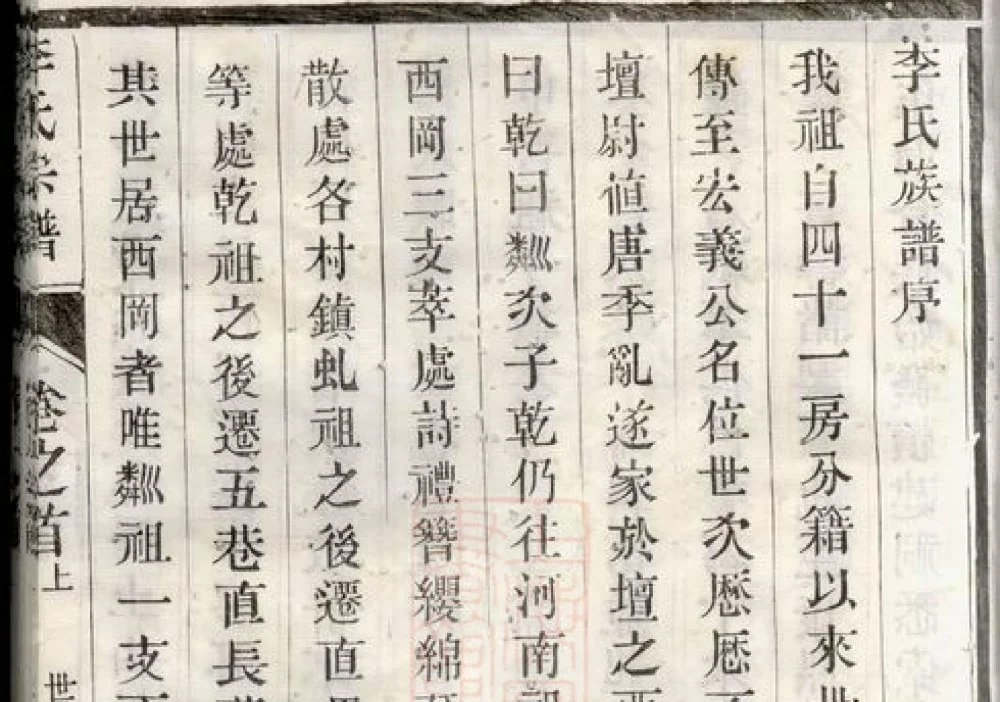 李氏族譜序
我祖自四十一房分籍以來世
傳至宏義公名位世次歷歷
壇尉值唐季亂遂家於壇之西
曰乾曰粼次子乾仍往河南
西岡三支萃處詩禮簪纓綿
散處各村鎮虬祖之後遷直
等處乾祖之後遷五巷直長
其世居西岡者唯粼祖一支
李氏宗譜
卷之首
上
世